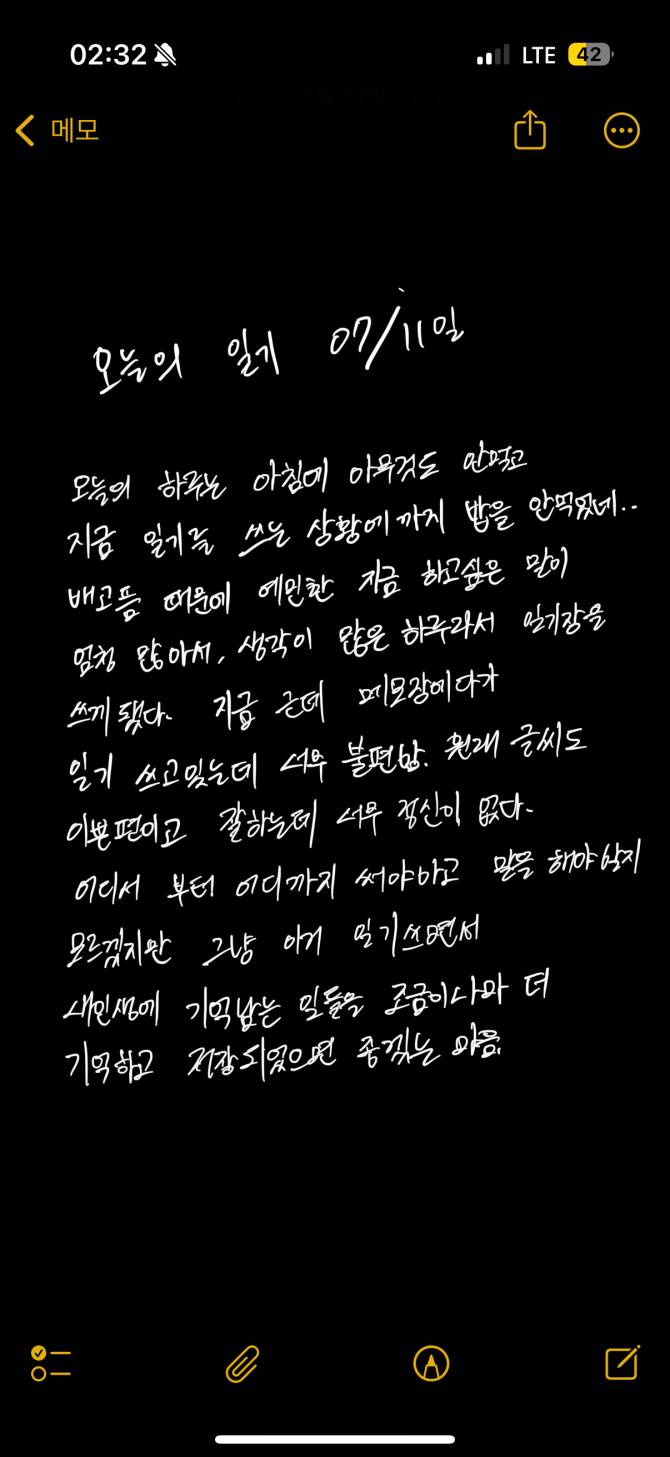 02:32
LTE 42
메모
오늘의 일기 07/11일
오늘의 하루는 아침에 아무것도 안먹고
지금 일기를 쓰는 상황에까지 밥을 안먹었네..
배고픔 때문에 예민한 지금 하고싶은 말이
엄청 많아서, 생각이 많은 하루라서 일기장을
쓰게 됐다. 지금 근데 메모장에다가
일기 쓰고있는데 너무 불편함. 원래 글씨도
이쁜편이고 잘하는데 너무 정신이 없다.
어디서 부터 어디까지 써야하고 말을 해야할지
모르겠지만 그냥 이거 일기쓰면서
내인생에 기억남는 일들을 조금이나마 더
기억하고 저장되었으면 좋겠는 마음.